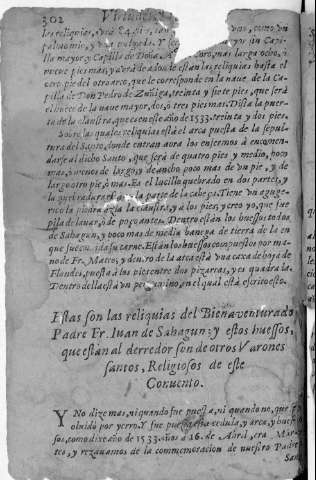 302 Virtudes
las reliquias,
palmo mio, y
lla mayor, y Capilla de Doña
nueve pies mas, y avrà de adonde estàn las reliquias hasta el
otro pie del otro arco, que le corresponde en la nave de la Ca-
pilla de Don Pedro de Zuñiga, treinta y siete pies, que serà
el hueco de la nave mayor, dos, ò tres pies mas. Dista la puer-
ta de la claustra, que es en este año de 1533. treinta y dos pies.
Sobre las quales reliquias està el arca puesta de la sepul-
tura del Santo, donde entran aora los enfermos à encomen-
darse al dicho Santo, que serà de quatro pies y medio, poco
mas, ò menos de largo, y de ancho poco mas de un pie, y de
largo otro pie, ò mas. Es el lucillo quebrado en dos partes, y
la quebradura à la parte de la cabeça. Tiene un aguge-
rico la piedra à la claustra, y à los pies, y creo yo, que fue
pila de lavar, ò de poyo antes. Dentro estàn los huessos todos
de Sahagun, y poco mas de media hanega de tierra de la en
que fue su carne. Estàn los huessos compuestos por ma-
no de Fr. Matteo, y dentro de la arca està una caxa de hoja de
Flandes, puesta à los pies entre dos pizarras, y es quadrada.
Dentro della està un pergamino, en el qual està escrito esto.
Estas son las reliquias del Bienaventurado
Padre Fr. Iuan de Sahagun: y estos huessos,
que estàn al derredor son de otros Varones
santos, Religiosos de este
Convento.
Y No dize mas, ni quando fue puesta, ni quando no, que se
olvidò por yerro. Y fue puesta la cedula, y arca, y hues-
sos, como dixe año de 1533. años à 16. de Abril, era Mar-
tes, y rezavamos de la commemoracion de nuestro Padre
San